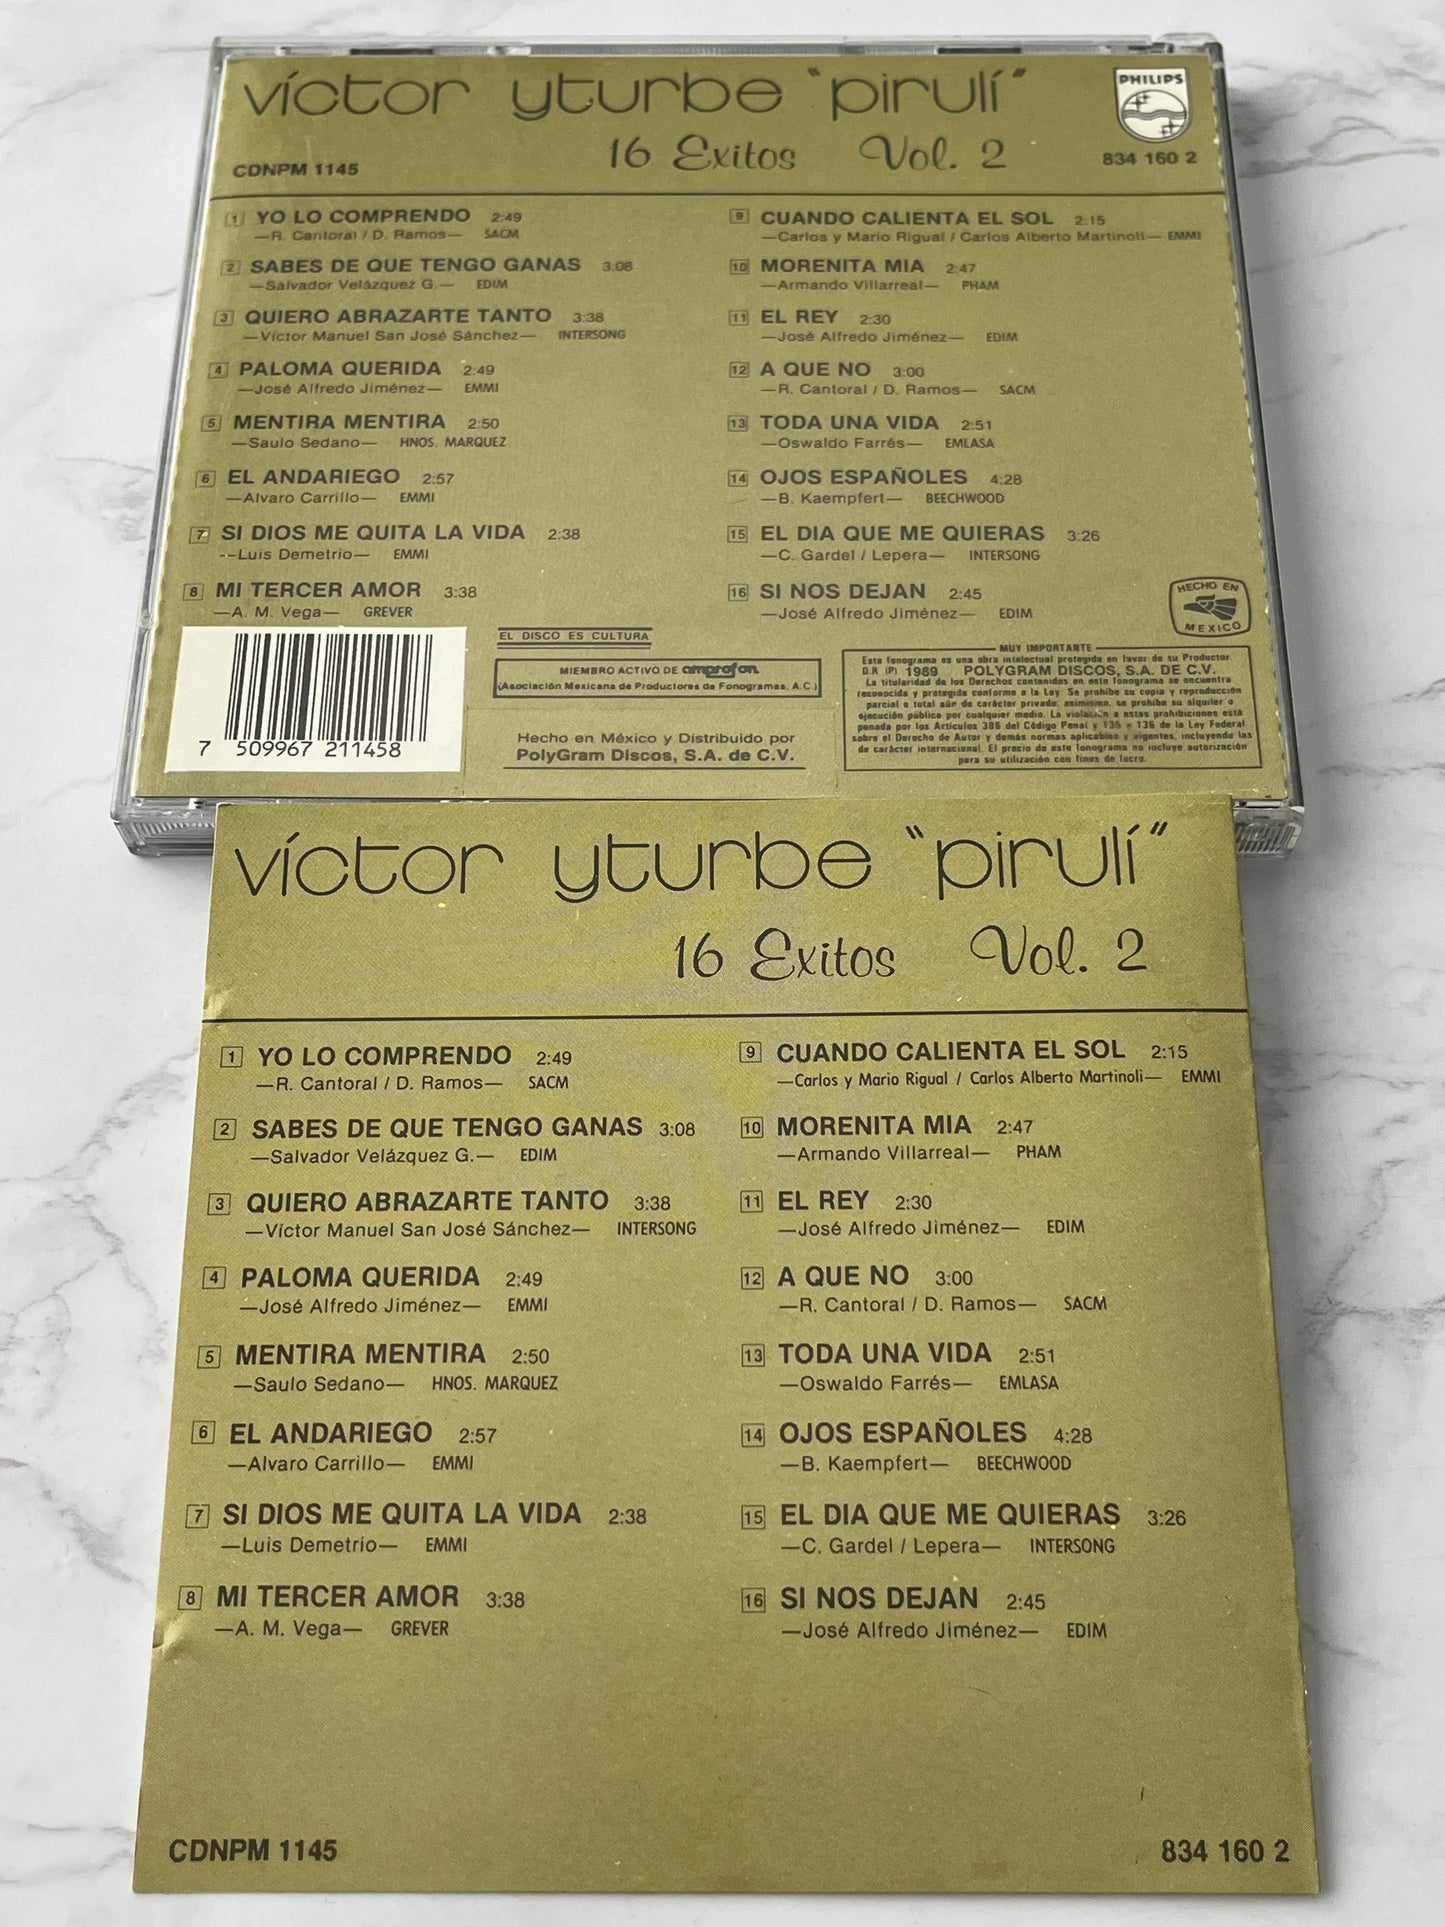 víctor yturbe "pirulí"
16 Exitos Vol. 2
PHILIPS
CDNPM 1145
834 160 2
1 YO LO COMPRENDO 2:49
—R. Cantoral / D. Ramos— SACM
2 SABES DE QUE TENGO GANAS 3:08
—Salvador Velázquez G.— EDIM
3 QUIERO ABRAZARTE TANTO 3:38
—Víctor Manuel San José Sánchez— INTERSONG
4 PALOMA QUERIDA 2:49
—José Alfredo Jiménez— EMMI
5 MENTIRA MENTIRA 2:50
—Saulo Sedano— HNOS. MARQUEZ
6 EL ANDARIEGO 2:57
—Alvaro Carrillo— EMMI
7 SI DIOS ME QUITA LA VIDA 2:38
--Luis Demetrio— EMMI
8 MI TERCER AMOR 3:38
—A. M. Vega— GREVER
9 CUANDO CALIENTA EL SOL 2:15
—Carlos y Mario Rigual / Carlos Alberto Martinoli— EMMI
10 MORENITA MIA 2:47
—Armando Villarreal— PHAM
11 EL REY 2:30
—José Alfredo Jiménez— EDIM
12 A QUE NO 3:00
—R. Cantoral / D. Ramos— SACM
13 TODA UNA VIDA 2:51
—Oswaldo Farrés— EMLASA
14 OJOS ESPAÑOLES 4:28
—B. Kaempfert— BEECHWOOD
15 EL DIA QUE ME QUIERAS 3:26
—C. Gardel / Lepera— INTERSONG
16 SI NOS DEJAN 2:45
—José Alfredo Jiménez— EDIM
HECHO EN
MEXICO
7 509967 211458
EL DISCO ES CULTURA
MIEMBRO ACTIVO DE amprofon
(Asociación Mexicana de Productores de Fonogramas, A.C.)
Hecho en México y Distribuido por
PolyGram Discos, S.A. de C.V.
MUY IMPORTANTE
Este fonograma es una obra intelectual protegida en favor de su Productor.
D.R. (P) 1989 POLYGRAM DISCOS, S.A. DE C.V.
La titularidad de los Derechos contenidos en este fonograma se encuentra
reconocida y protegida conforme a la Ley. Se prohibe su copia y reproducción
parcial o total aún de carácter privado; asimismo, se prohibe su alquiler o
ejecución pública por cualquier medio. La violación a estas prohibiciones está
penada por los Artículos 386 del Código Penal y 135 a 136 de la Ley Federal
sobre el Derecho de Autor y demás normas aplicables y vigentes, incluyendo las
de carácter internacional. El precio de este fonograma no incluye autorización
para su utilización con fines de lucro.
víctor yturbe "pirulí"
16 Exitos Vol. 2
1 YO LO COMPRENDO 2:49
—R. Cantoral / D. Ramos— SACM
2 SABES DE QUE TENGO GANAS 3:08
—Salvador Velázquez G.— EDIM
3 QUIERO ABRAZARTE TANTO 3:38
—Víctor Manuel San José Sánchez— INTERSONG
4 PALOMA QUERIDA 2:49
—José Alfredo Jiménez— EMMI
5 MENTIRA MENTIRA 2:50
—Saulo Sedano— HNOS. MARQUEZ
6 EL ANDARIEGO 2:57
—Alvaro Carrillo— EMMI
7 SI DIOS ME QUITA LA VIDA 2:38
—Luis Demetrio— EMMI
8 MI TERCER AMOR 3:38
—A. M. Vega— GREVER
9 CUANDO CALIENTA EL SOL 2:15
—Carlos y Mario Rigual / Carlos Alberto Martinoli— EMMI
10 MORENITA MIA 2:47
—Armando Villarreal— PHAM
11 EL REY 2:30
—José Alfredo Jiménez— EDIM
12 A QUE NO 3:00
—R. Cantoral / D. Ramos— SACM
13 TODA UNA VIDA 2:51
—Oswaldo Farrés— EMLASA
14 OJOS ESPAÑOLES 4:28
—B. Kaempfert— BEECHWOOD
15 EL DIA QUE ME QUIERAS 3:26
—C. Gardel / Lepera— INTERSONG
16 SI NOS DEJAN 2:45
—José Alfredo Jiménez— EDIM
CDNPM 1145
834 160 2